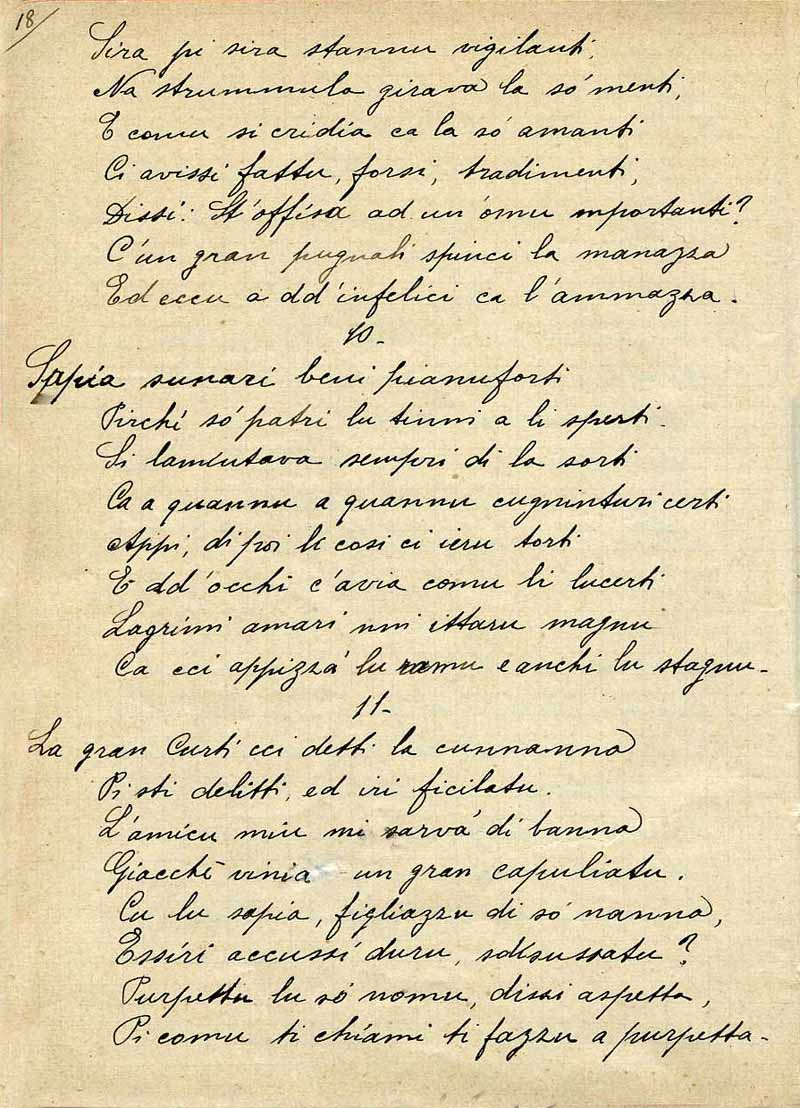 18
Sira pi sira stannu vigilanti,
Na strummula girava la só menti,
E comu si cridia ca la só amanti
Ci avissi fattu, forsi, tradimenti,
Dissi: St'offisa ad un'omu mportanti?
C'un gran pugnali spinci la manazza
Ed eccu a dd'infelici ca l'ammazza.
10-
Sapia sunari beni pianuforti
Pirchí só patri lu tinni a li sperti.
Si lamintava sempri di la sorti
Ca a quannu a quannu cugninturi certi
Appi, di poi li cosi ci ieru torti
E dd'occhi c'avia comu li lucerti
Lagrimi amari nni ittaru magnu
Ca cci appizzá lu ramu e anchi lu stagnu-
11-
La gran Curti cci detti la cunnanna
Pi sti delitti, ed iri ficilatu.
L'amicu miu mi sarvá di banna
Giacchè vinia un gran capuliatu.
Cu lu sapia, figliazzu di só nanna,
Essiri accussí duru, sdisussatu?
Purpetta lu só nomu, dissi aspetta,
Pi comu ti chiami ti fazzu a purpetta-